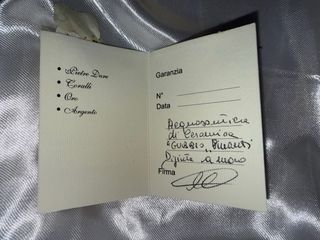 Pietre Dure
Coralli
Oro
Argento
Garanzia
N°
Data
Acquasantiera
di Ceramica
Dipinta a mano
Firma